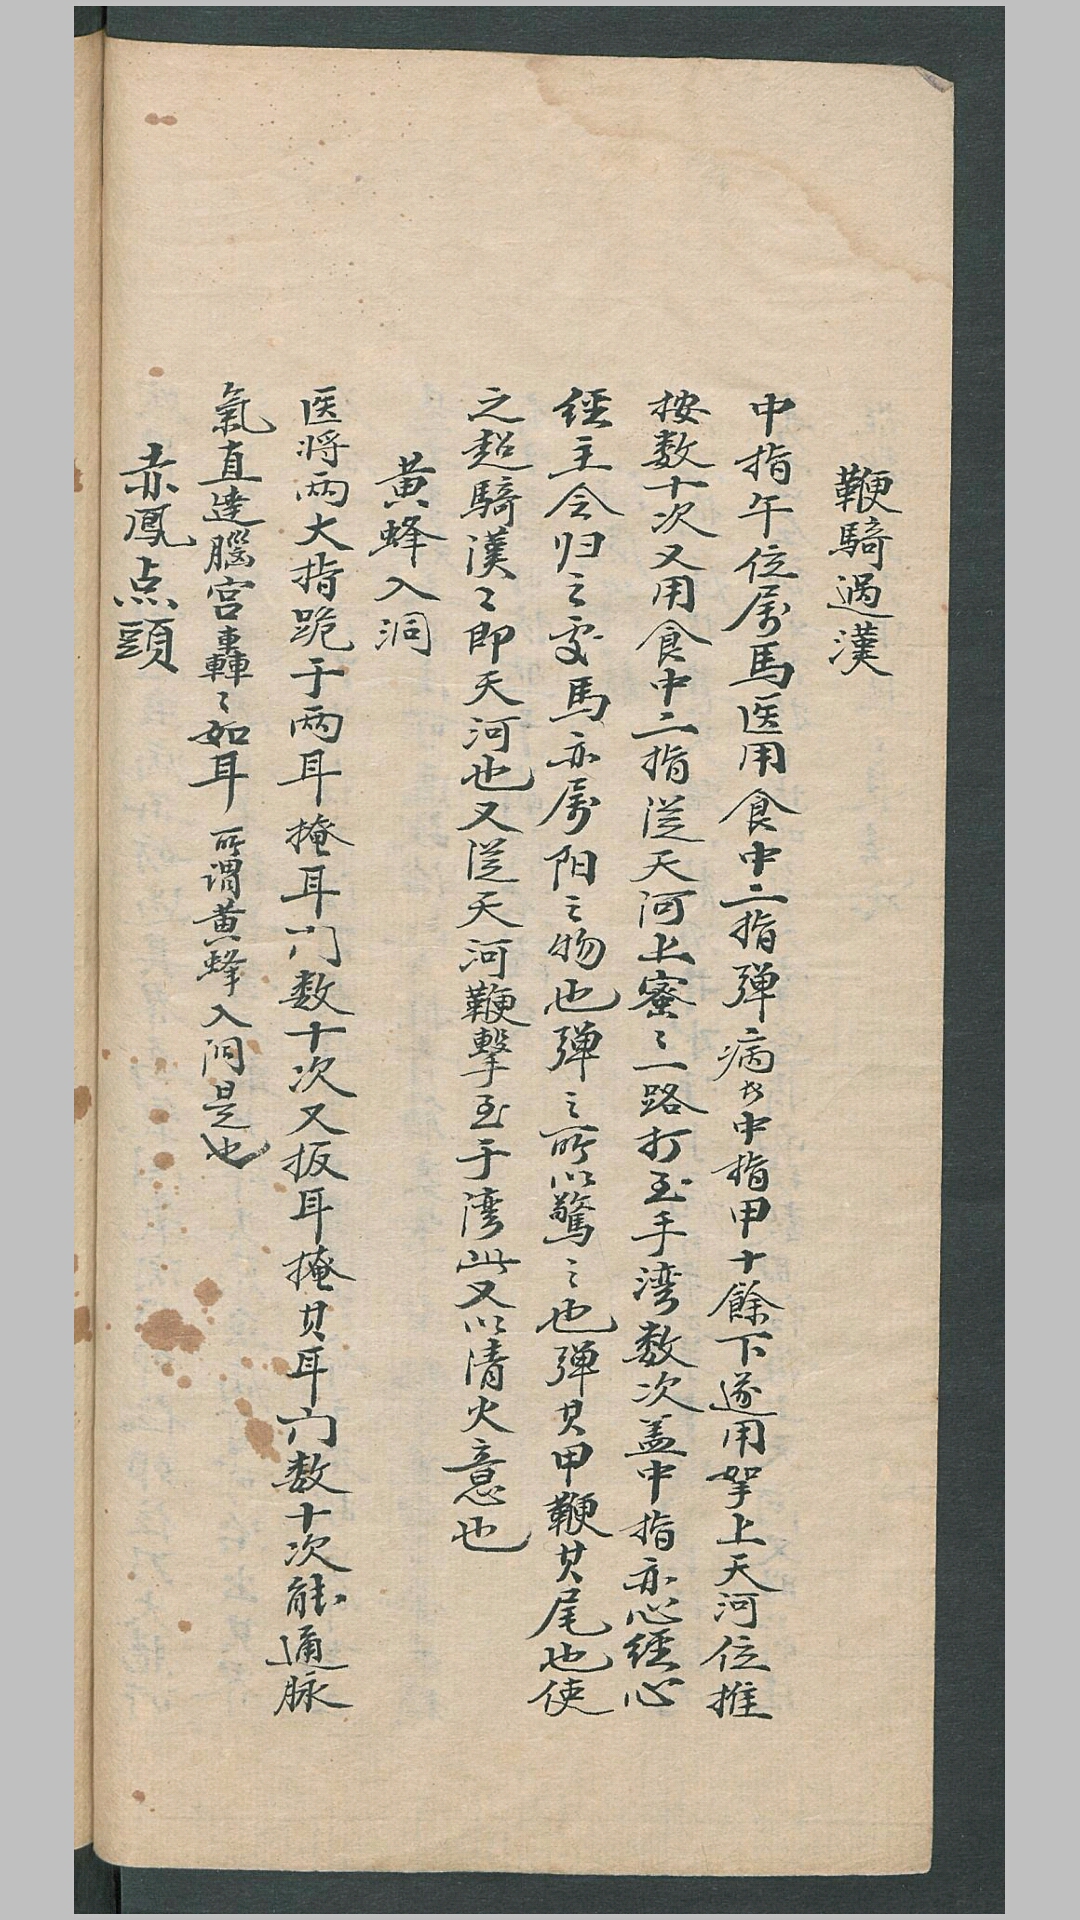 鞭騎過漢
中指午位属馬医用食中二指弹病者中指甲十餘下遂用拏上天河位推
按数十次又用食中二指従天河上密〻一路打至手湾数次盖中指亦心経心
経主令归之〻处馬亦属阳之物也弹之所以驚之也弹其甲鞭其尾也使
之超騎漢〻即天河也又従天河鞭擊至于湾此又以清火意也
黄蜂入洞
医将两大指跪于两耳掩耳门数十次又扳耳掩其耳门数十次能通脉
氣直達腦宫轟〻如耳所谓黄蜂入洞是也
赤鳳点頭